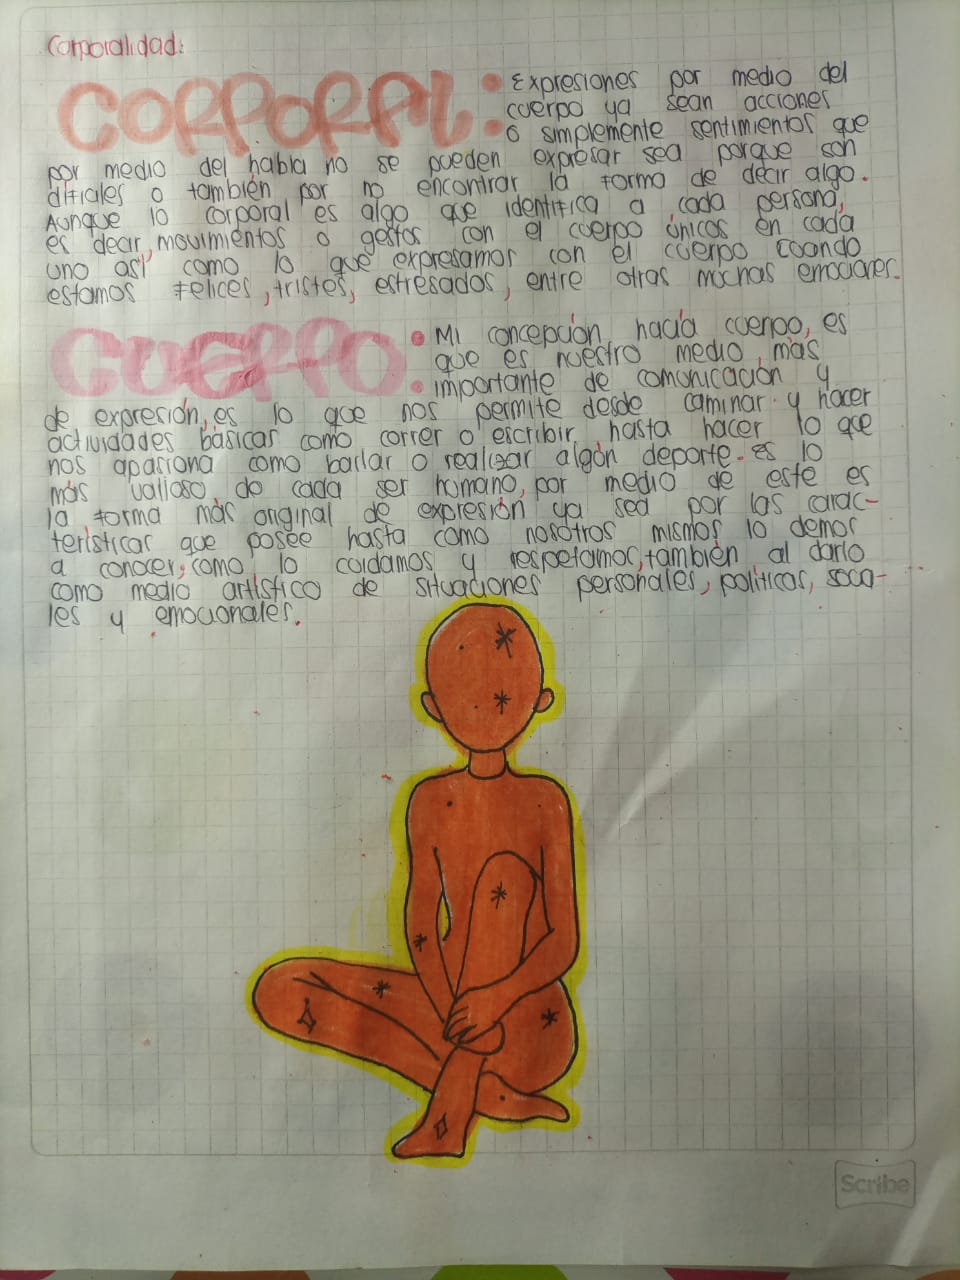 Corporalidad:
CORPORAL: Expresiones por medio del
cuerpo ya sean acciones
o simplemente sentimientos que
por medio del habla no se pueden expresar sea porque son
difíciales o también por no encontrar la forma de decir algo.
Aunque lo corporal es algo que identifica a cada persona,
es decir, movimientos o gestos con el cuerpo únicos en cada
uno así como lo que expresamos con el cuerpo cuando
estamos felices, tristes, estresados, entre otras muchas emociones.
CUERPO: Mi concepción hacía cuerpo, es
que es nuestro medio más
importante de comunicación y
de expresión, es lo que nos permite desde caminar y hacer
actividades básicas como correr o escribir, hasta hacer lo que
nos apasiona como bailar o realizar algún deporte. es lo
más valioso de cada ser humano, por medio de este es
la forma más original de expresión ya sea por las carac-
terísticas que posee hasta como nosotros mismos lo demos
a conocer, como lo cuidamos y respetamos, también al darlo
como medio artístico de situaciones personales, políticas, socia-
les y emocionales.
Scribe